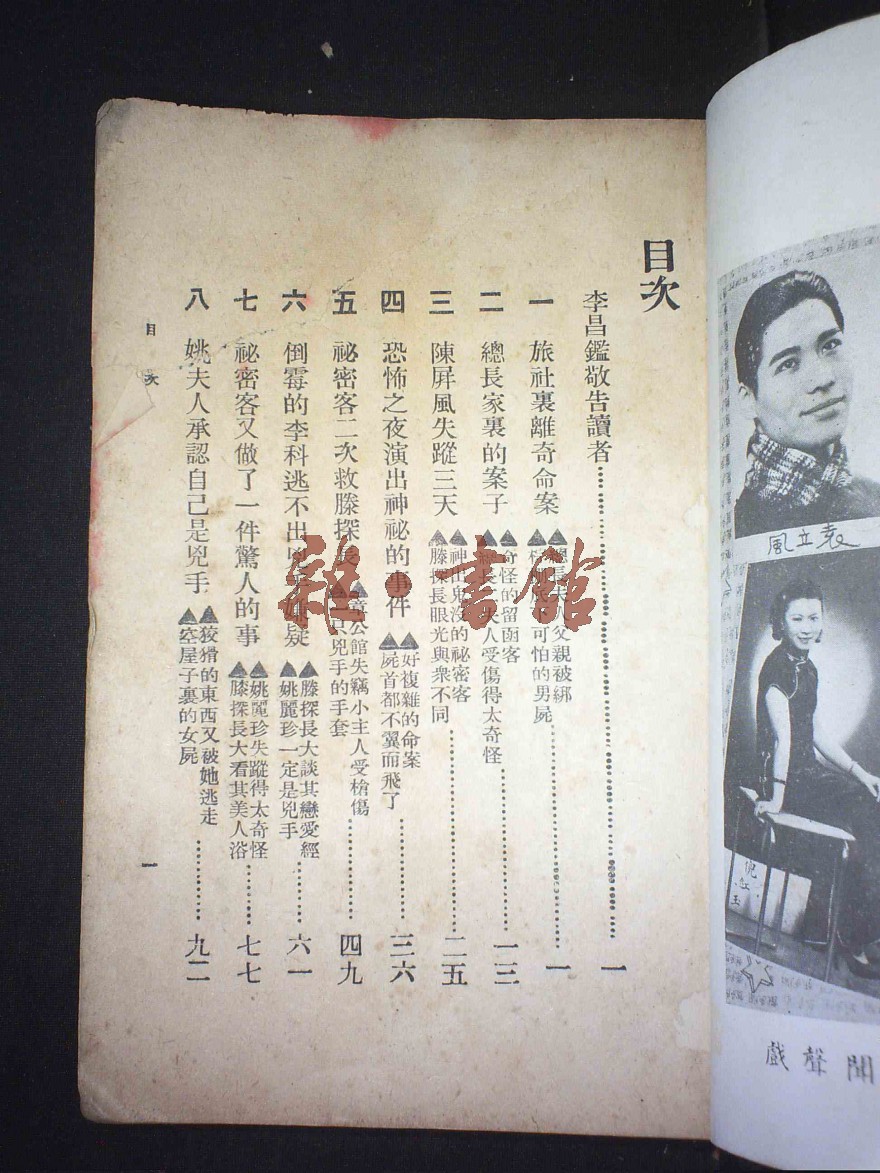 目次
李昌鑑敬告讀者 一
一 旅社裏離奇命案 ▲總長夫人父親被綁 可怕的男屍 一
二 總長家裏的案子 ▲奇怪的留函客 ▲總長夫人受傷得太奇怪 一三
三 陳屏風失蹤三天 ▲神出鬼没的祕密客 ▲滕探長眼光與衆不同 二五
四 恐怖之夜演出神祕的事件 ▲好複雜的命案 ▲屍首都不翼而飛了 三六
五 祕密客二次救滕探長 ▲童公館失竊小主人受槍傷 兇手的手套 四九
六 倒霉的李科逃不出兇手嫌疑 ▲滕探長大談其戀愛經 ▲姚麗珍一定是兇手 六一
七 祕密客又做了一件驚人的事 ▲姚麗珍失蹤得太奇怪 ▲滕探長大看其美人浴 七七
八 姚夫人承認自己是兇手 ▲狡猾的東西又被她逃走 ▲空屋子裏的女屍 九二
目次
一
雜·書館
風立袁
倪紅玉
戲聲聞